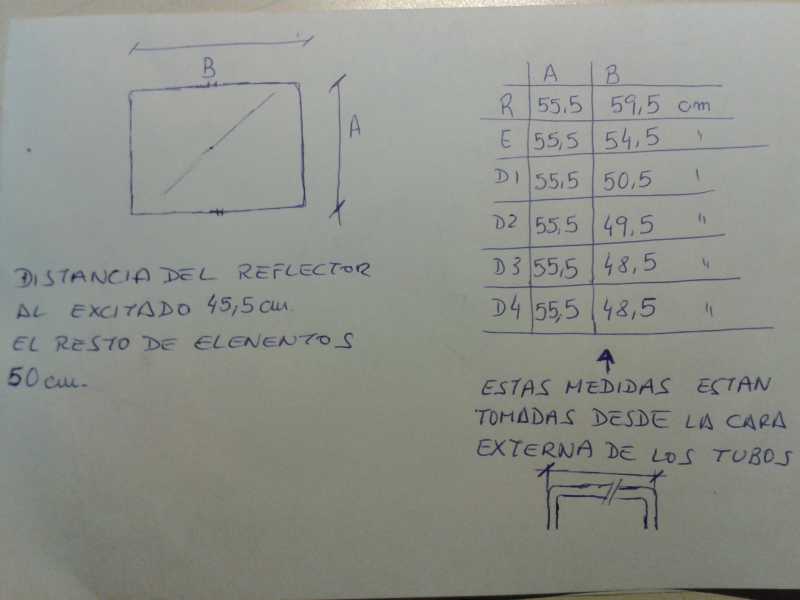 B
A
DISTANCIA DEL REFLECTOR
AL EXCITADO 45,5 cm.
EL RESTO DE ELENENTOS
50 cm.
A B
R 55.5 59,5 cm
E 55,5 54,5 "
D1 55,5 50,5 "
D2 55,5 49,5 "
D3 55,5 48,5 "
D4 55,5 48,5 "
ESTAS MEDIDAS ESTAN
TOMADAS DESDE LA CARA
EXTERNA DE LOS TUBOS